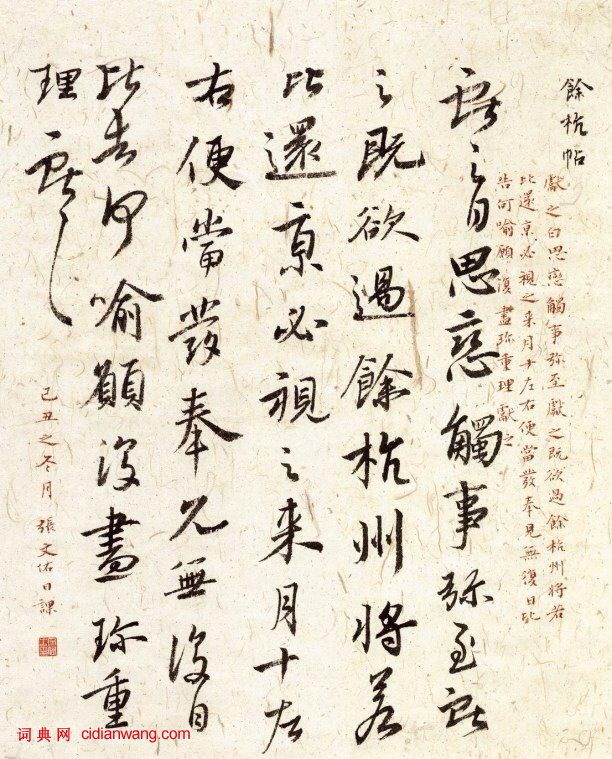 餘杭帖
獻之白思戀觸事弥至獻之既欲過餘杭州將若
比還京必視之来月十左右便當發奉見無復日比
告何喻願復盡珎重理獻之
獻之白思戀觸事弥至獻
之既欲過餘杭州將若
比還京必視之来月十左
右便當發奉見無復日
比告何喻願復盡珎重
理獻之
己丑之冬月張文佑日課
词典网 cidianwang.com